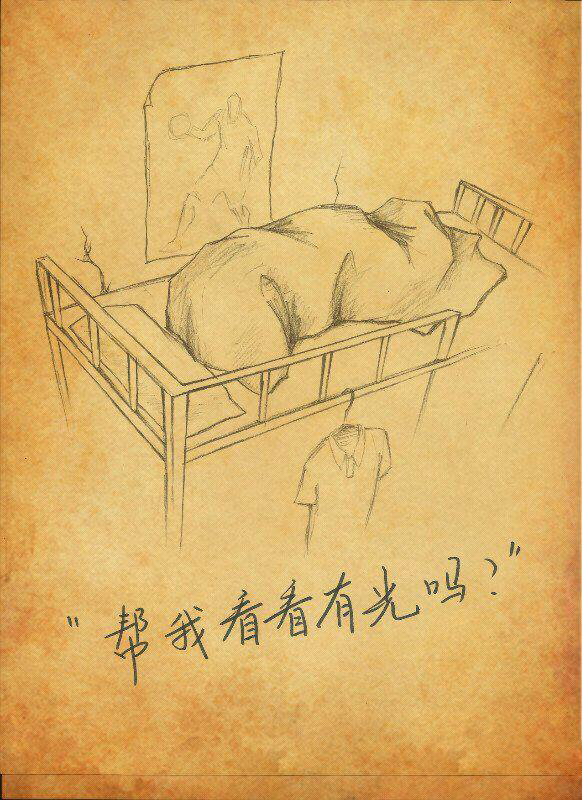 "帮我看看有光吗？"